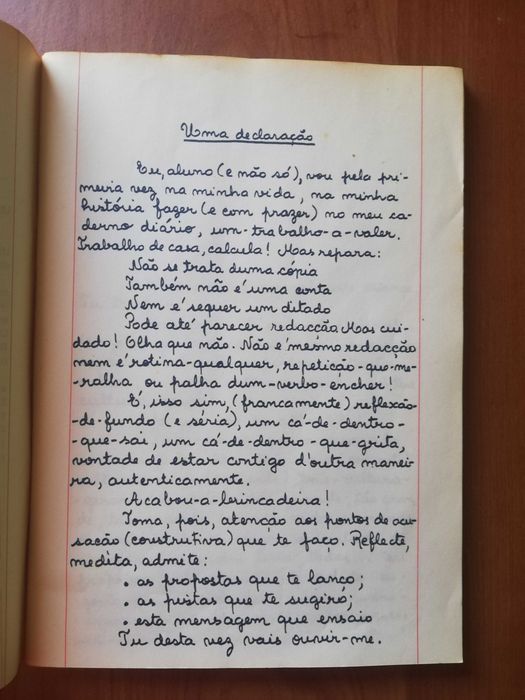 Uma declaração
Eu, aluno (e não só), vou pela pri-
meira vez na minha vida, na minha
história fazer (e com prazer) no meu ca-
derno diário, um-trabalho-a-valer.
Trabalho de casa, calcula! Mas repara:
Não se trata duma cópia
Também não é uma conta
Nem é sequer um ditado
Pode até parecer redacção. Mas cui-
dado! Olha que não. Não é mesmo redacção
nem é rotina-qualquer, repetição-que-me-
-ralha ou palha dum-verbo-encher!
É, isso sim, (francamente) reflexão-
-de-fundo (e séria), um cá-de-dentro-
-que-sai, um cá-de-dentro-que-grita,
vontade de estar contigo d'outra manei-
ra, autenticamente.
Acabou-a-brincadeira!
Toma, pois, atenção aos pontos de acu-
sação (construtiva) que te faço. Reflecte,
medita, admite:
• as propostas que te lanço;
• as pistas que te sugiro;
• esta mensagem que ensaio
Tu desta vez vais ouvir-me.